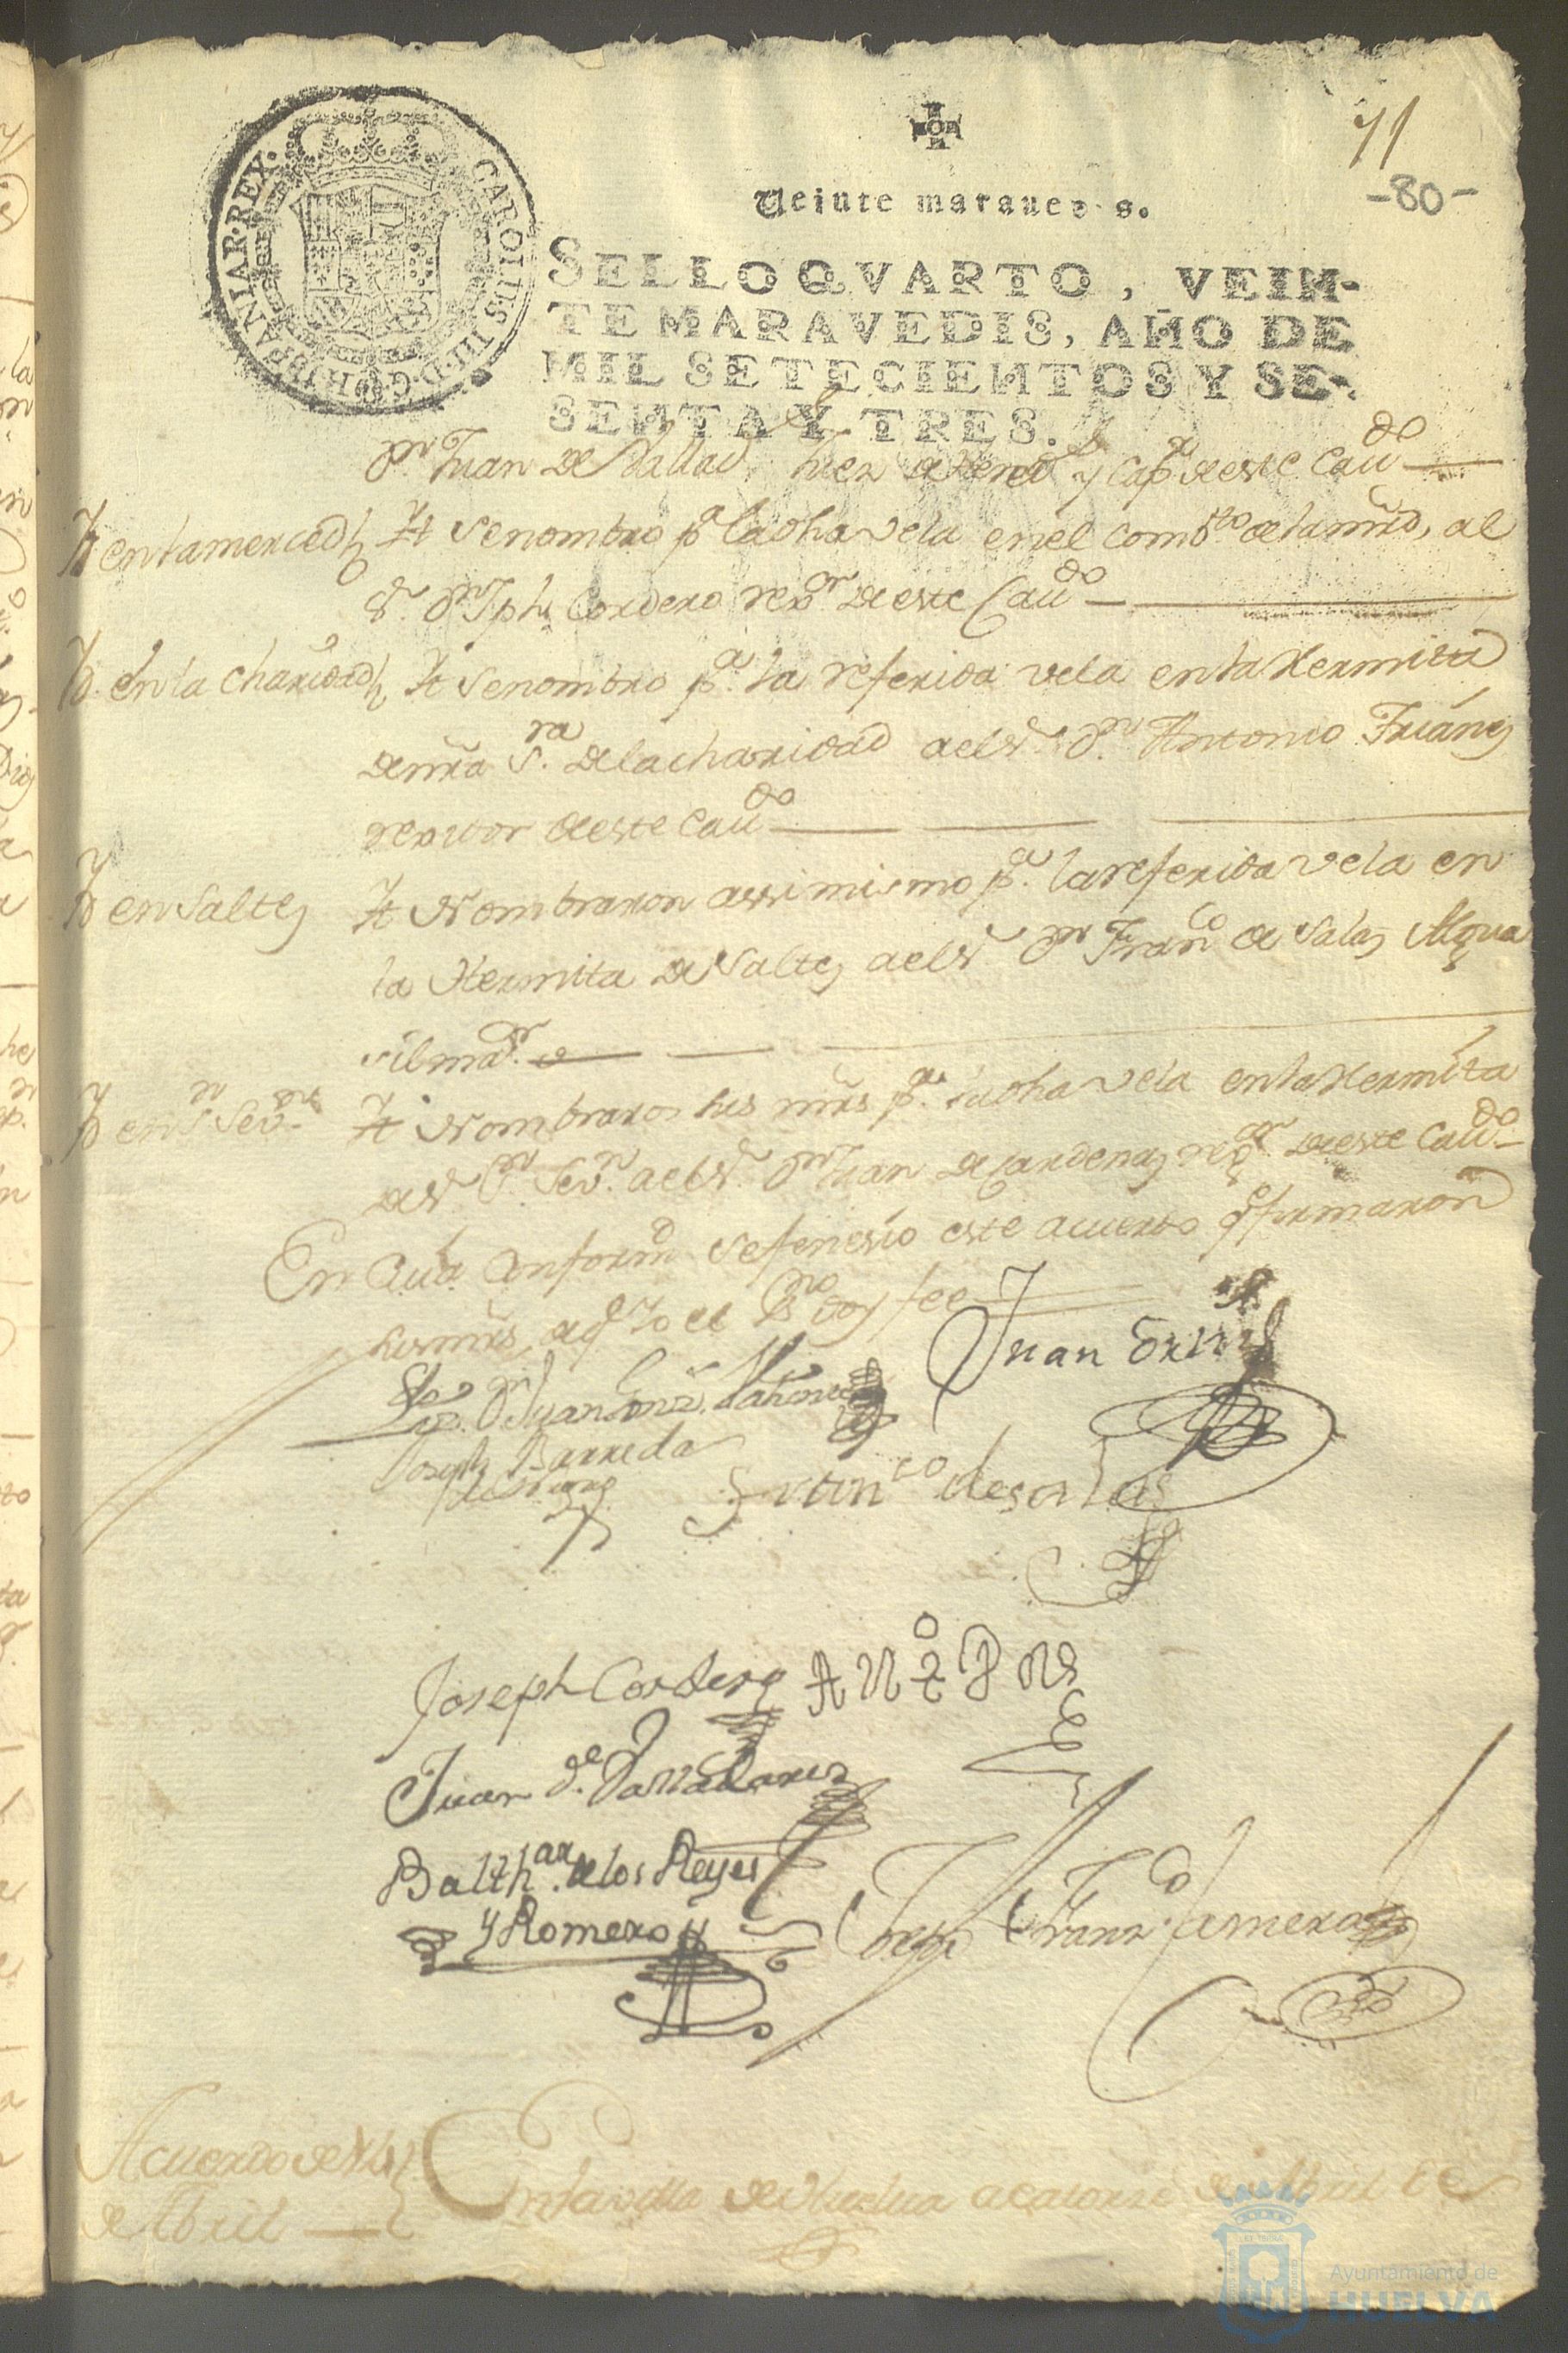 71
-80-
Veinte maravedis.
CAROLUS·III·D·G·HISPANIAR·REX·
SELLO QVARTO, VEIN-
TE MARAVEDIS, AÑO DE
MIL SETECIENTOS Y SE-
SENTA Y TRES.
Dn Juan de Vallads Juez y Capr de este Cavdo
Yd en la merced
It se nombro pa la dha vela en el Combto de la mrd, al
Sr Dn Jph Cordero rexor de este Cavdo
Yd en la charidad
It se nombro pa la referida vela en la Hermita
de nra Sra de la charidad a el Sr Dn Antonio
rexidor de este Cavdo
Yd en Saltes
It Nombraron assimismo pa la referida vela en
la Hermita de Saltes a el Sr Dn Franco de Salas Algua
sil mayr
Yd en Sn Sevn
It Nombraron sus mrs pa dha vela en la Hermita
de Sr Sn Sevn a el Sr Dn Juan de Cardenas rexor de este Cavdo
En cuia conformd se fenesio este acuerdo q firmaron
sus mrs de q Yo el Esno doy fee
Juan
Ldo Dn Juan
Joseph Barreda
Franco de salas
Joseph Cordero
Juan de Valladares
Balthar de los Reyes
y Romero
Franco Camero
Acuerdo de 14
de Abril
En la villa de Huelva a catorse de Abril de
Ayuntamiento de
HUELVA